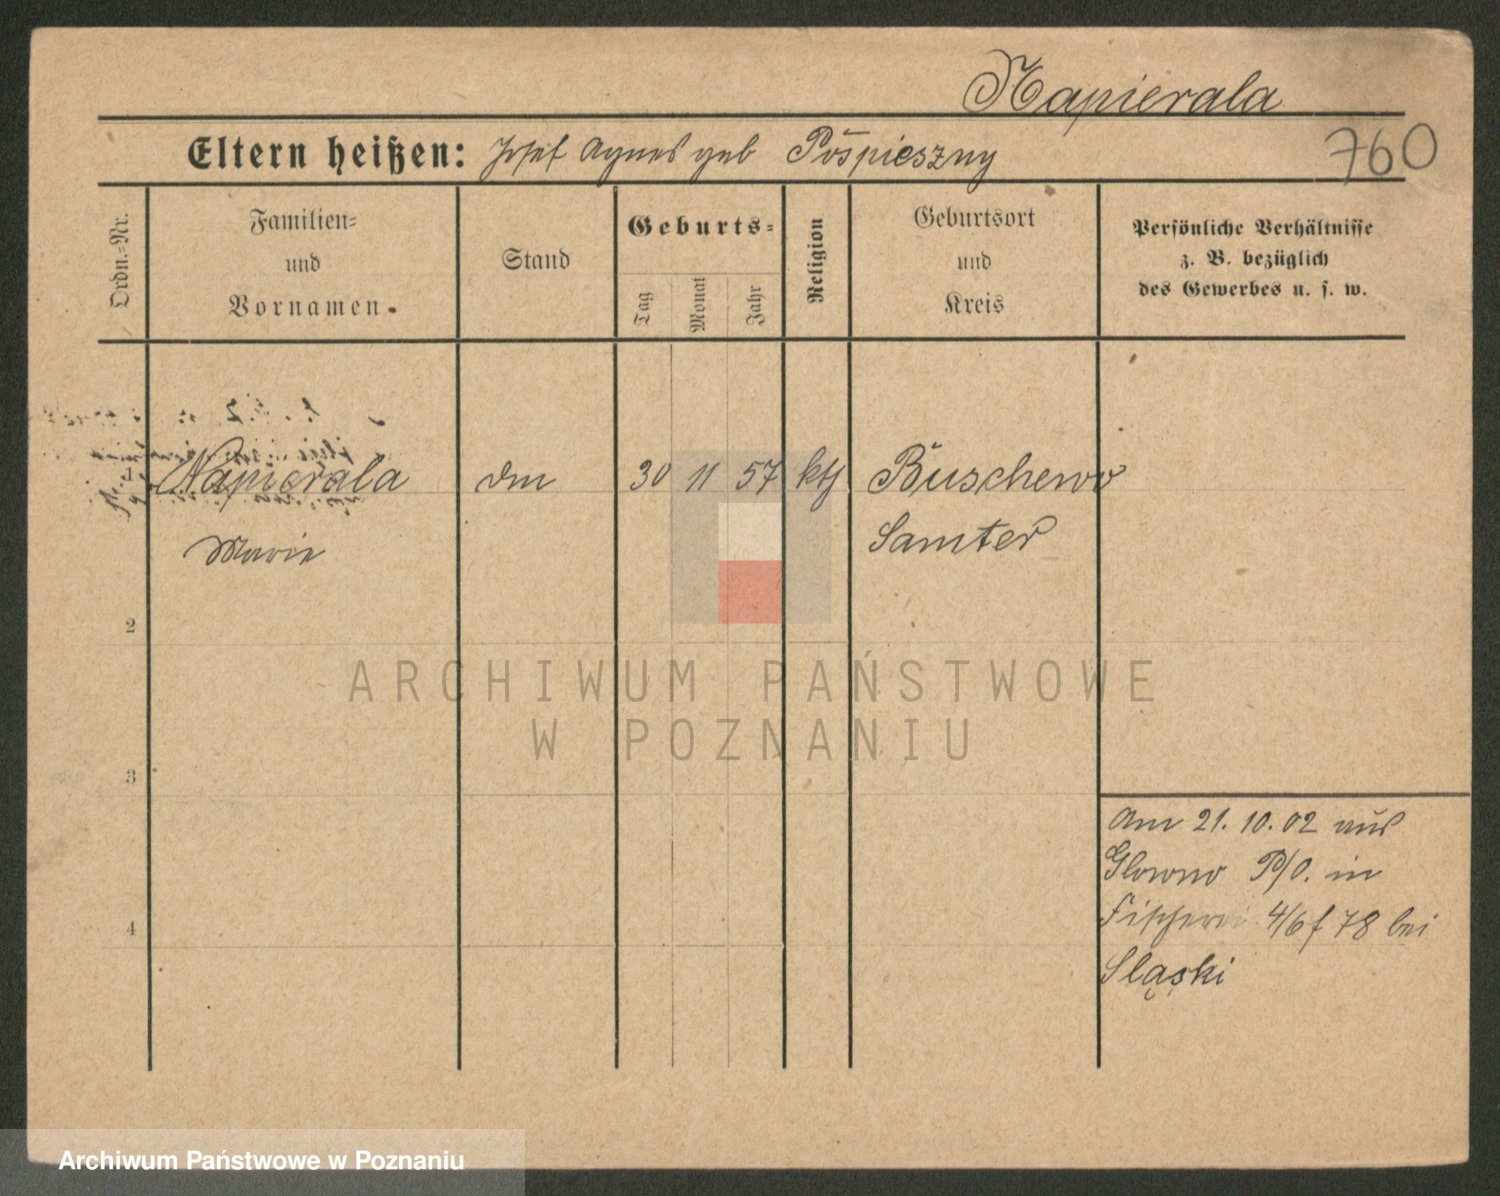 Napierala
760
Eltern heißen: Josef Agnes geb Pospieszny
Ordn.-Nr.
Familien-
und
Vornamen.
Stand
Geburts-
Tag
Monat
Jahr
Religion
Geburtsort
und
Kreis
Persönliche Verhältnisse
z. B. bezüglich
des Gewerbes u. s. w.
1 Napierala 30 11 57 kth Buschewo
Marie Samter
2
3
4
Am 21. 10. 02 aus
Glowno P/O. in
Fischerei 4/6 f 78 bei
Sląski
ARCHIWUM PAŃSTWOWE
W POZNANIU
Archiwum Państwowe w Poznaniu